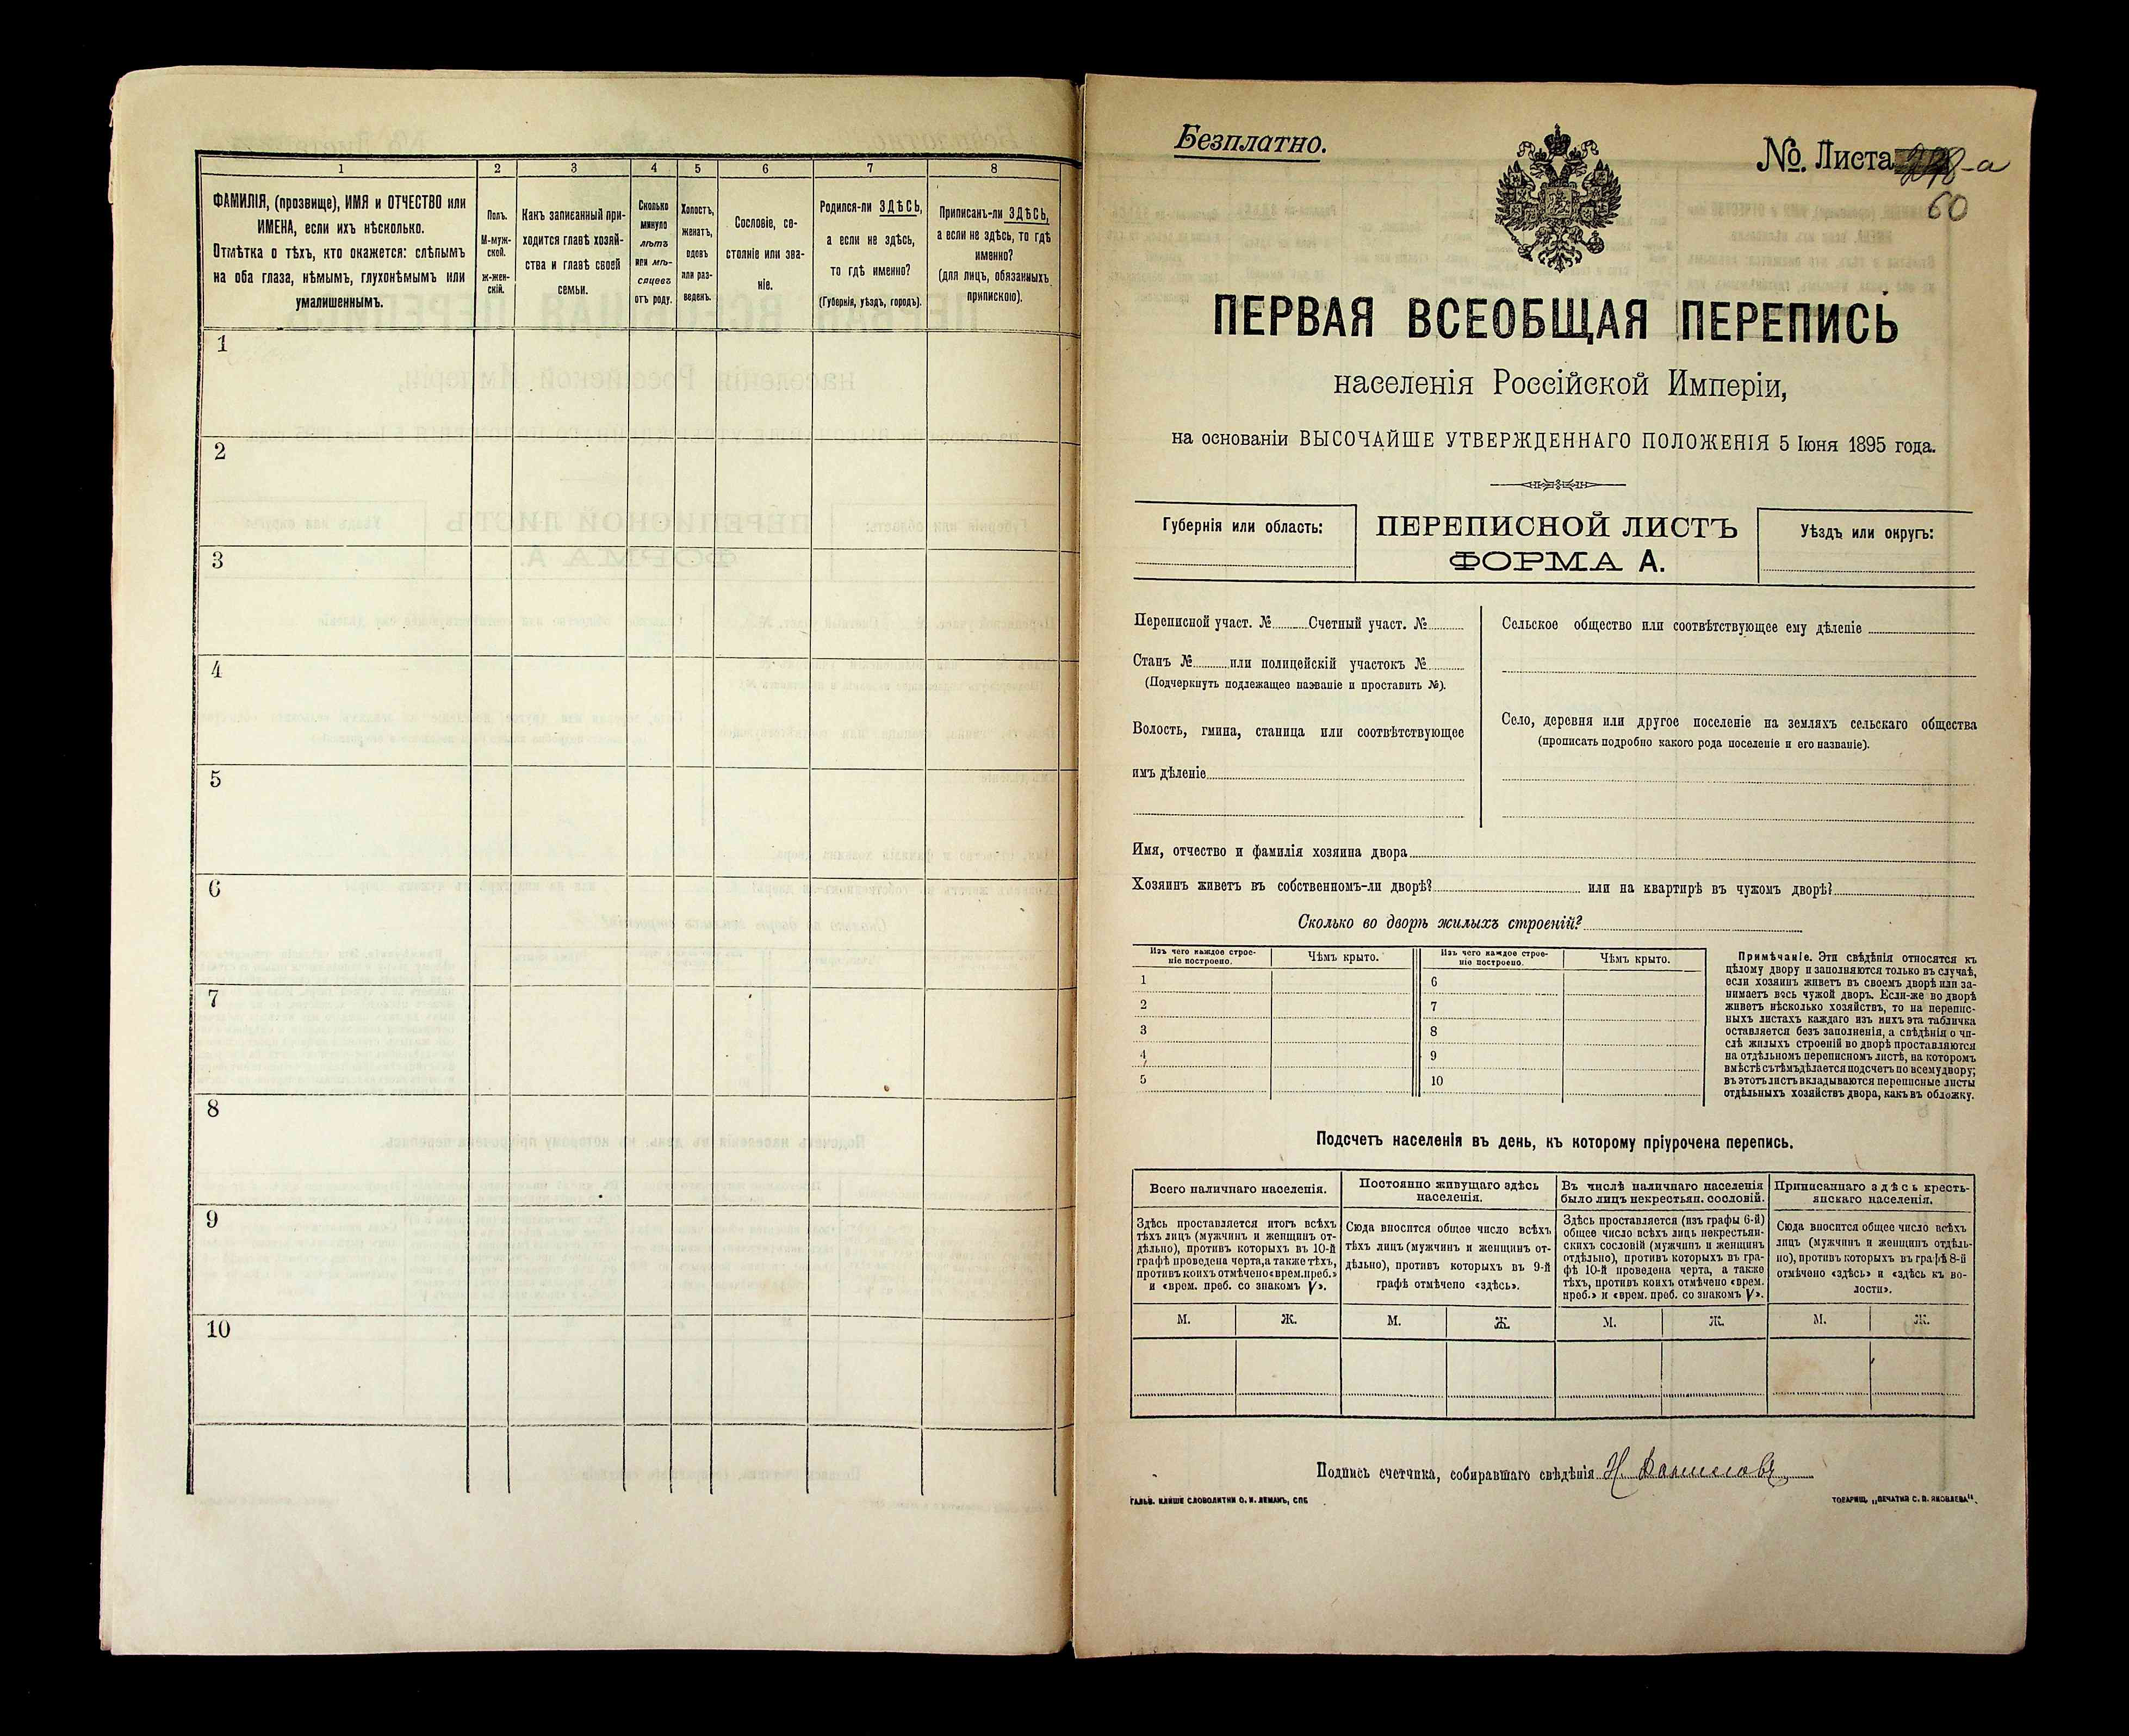 1 2 3 4 5 6 7 8
ФАМИЛІЯ, (прозвище), ИМЯ и ОТЧЕСТВО или
ИМЕНА, если ихъ нѣсколько.
Отмѣтка о тѣхъ, кто окажется: слѣпымъ
на оба глаза, нѣмымъ, глухонѣмымъ или
умалишеннымъ.
Полъ.
М-муж-
ской.
ж-жен-
скій.
Какъ записанный при-
ходится главѣ хозяй-
ства и главѣ своей
семьи.
Сколько
минуло
лѣтъ
или мѣ-
сяцевъ
отъ роду.
Холостъ,
женатъ,
вдовъ
или раз-
веденъ.
Сословіе, со-
стояніе или зва-
ніе.
Родился-ли ЗДѢСЬ,
а если не здѣсь,
то гдѣ именно?
(Губернія, уѣздъ, городъ).
Приписанъ-ли ЗДѢСЬ,
а если не здѣсь, то гдѣ
именно?
(для лицъ, обязанныхъ
припискою).
1
2
3
4
5
6
7
8
9
10
Безплатно.
№. Листа
60
ПЕРВАЯ ВСЕОБЩАЯ ПЕРЕПИСЬ
населенія Россійской Имперіи,
на основаніи ВЫСОЧАЙШЕ УТВЕРЖДЕННАГО ПОЛОЖЕНІЯ 5 Іюня 1895 года.
Губернія или область:
ПЕРЕПИСНОЙ ЛИСТЪ
ФОРМА А.
Уѣздъ или округъ:
Переписной участ. № Счетный участ. №
Станъ № или полицейскій участокъ №
(Подчеркнуть подлежащее названіе и проставить №).
Волость, гмина, станица или соотвѣтствующее
имъ дѣленіе
Сельское общество или соотвѣтствующее ему дѣленіе
Село, деревня или другое поселеніе на земляхъ сельскаго общества
(прописать подробно какого рода поселеніе и его названіе).
Имя, отчество и фамилія хозяина двора
Хозяинъ живетъ въ собственномъ-ли дворѣ? или на квартирѣ въ чужомъ дворѣ?
Сколько во дворѣ жилыхъ строеній?
Изъ чего каждое строе-
ніе построено.
Чѣмъ крыто.
Изъ чего каждое строе-
ніе построено.
Чѣмъ крыто.
1 6
2 7
3 8
4 9
5 10
Примѣчаніе. Эти свѣдѣнія относятся къ
цѣлому двору и заполняются только въ случаѣ,
если хозяинъ живетъ въ своемъ дворѣ или за-
нимаетъ весь чужой дворъ. Если-же во дворѣ
живетъ нѣсколько хозяйствъ, то на перепис-
ныхъ листахъ каждаго изъ нихъ эта табличка
оставляется безъ заполненія, а свѣдѣнія о чи-
слѣ жилыхъ строеній во дворѣ проставляются
на отдѣльномъ переписномъ листѣ, на которомъ
вмѣстѣ съ тѣмъ дѣлается подсчетъ по всему двору;
въ этотъ листъ вкладываются переписные листы
отдѣльныхъ хозяйствъ двора, какъ въ обложку.
Подсчетъ населенія въ день, къ которому пріурочена перепись.
Всего наличнаго населенія.
Постоянно живущаго здѣсь
населенія.
Въ числѣ наличнаго населенія
было лицъ некрестьян. сословій.
Приписаннаго здѣсь кресть-
янскаго населенія.
Здѣсь проставляется итогъ всѣхъ
тѣхъ лицъ (мужчинъ и женщинъ от-
дѣльно), противъ которыхъ въ 10-й
графѣ проведена черта, а также тѣхъ,
противъ коихъ отмѣчено «врем. преб.»
и «врем. преб. со знакомъ V».
Сюда вносится общее число всѣхъ
тѣхъ лицъ (мужчинъ и женщинъ от-
дѣльно), противъ которыхъ въ 9-й
графѣ отмѣчено «здѣсь».
Здѣсь проставляется (изъ графы 6-й)
общее число всѣхъ лицъ некрестьян-
скихъ сословій (мужчинъ и женщинъ
отдѣльно), противъ которыхъ въ гра-
фѣ 10-й проведена черта, а также
тѣхъ, противъ коихъ отмѣчено «врем.
преб.» и «врем. преб. со знакомъ V».
Сюда вносится общее число всѣхъ
лицъ (мужчинъ и женщинъ отдѣль-
но), противъ которыхъ въ графѣ 8-й
отмѣчено «здѣсь» и «здѣсь къ во-
лости».
М. Ж. М. Ж. М. Ж. М. Ж.
Подпись счетчика, собиравшаго свѣдѣнія Н.
ГАЛЬВ. КЛИШЕ СЛОВОЛИТНИ О. И. ЛЕМАНЪ, СПБ.
ТОВАРИЩ. „ПЕЧАТНЯ С. П. ЯКОВЛЕВА".